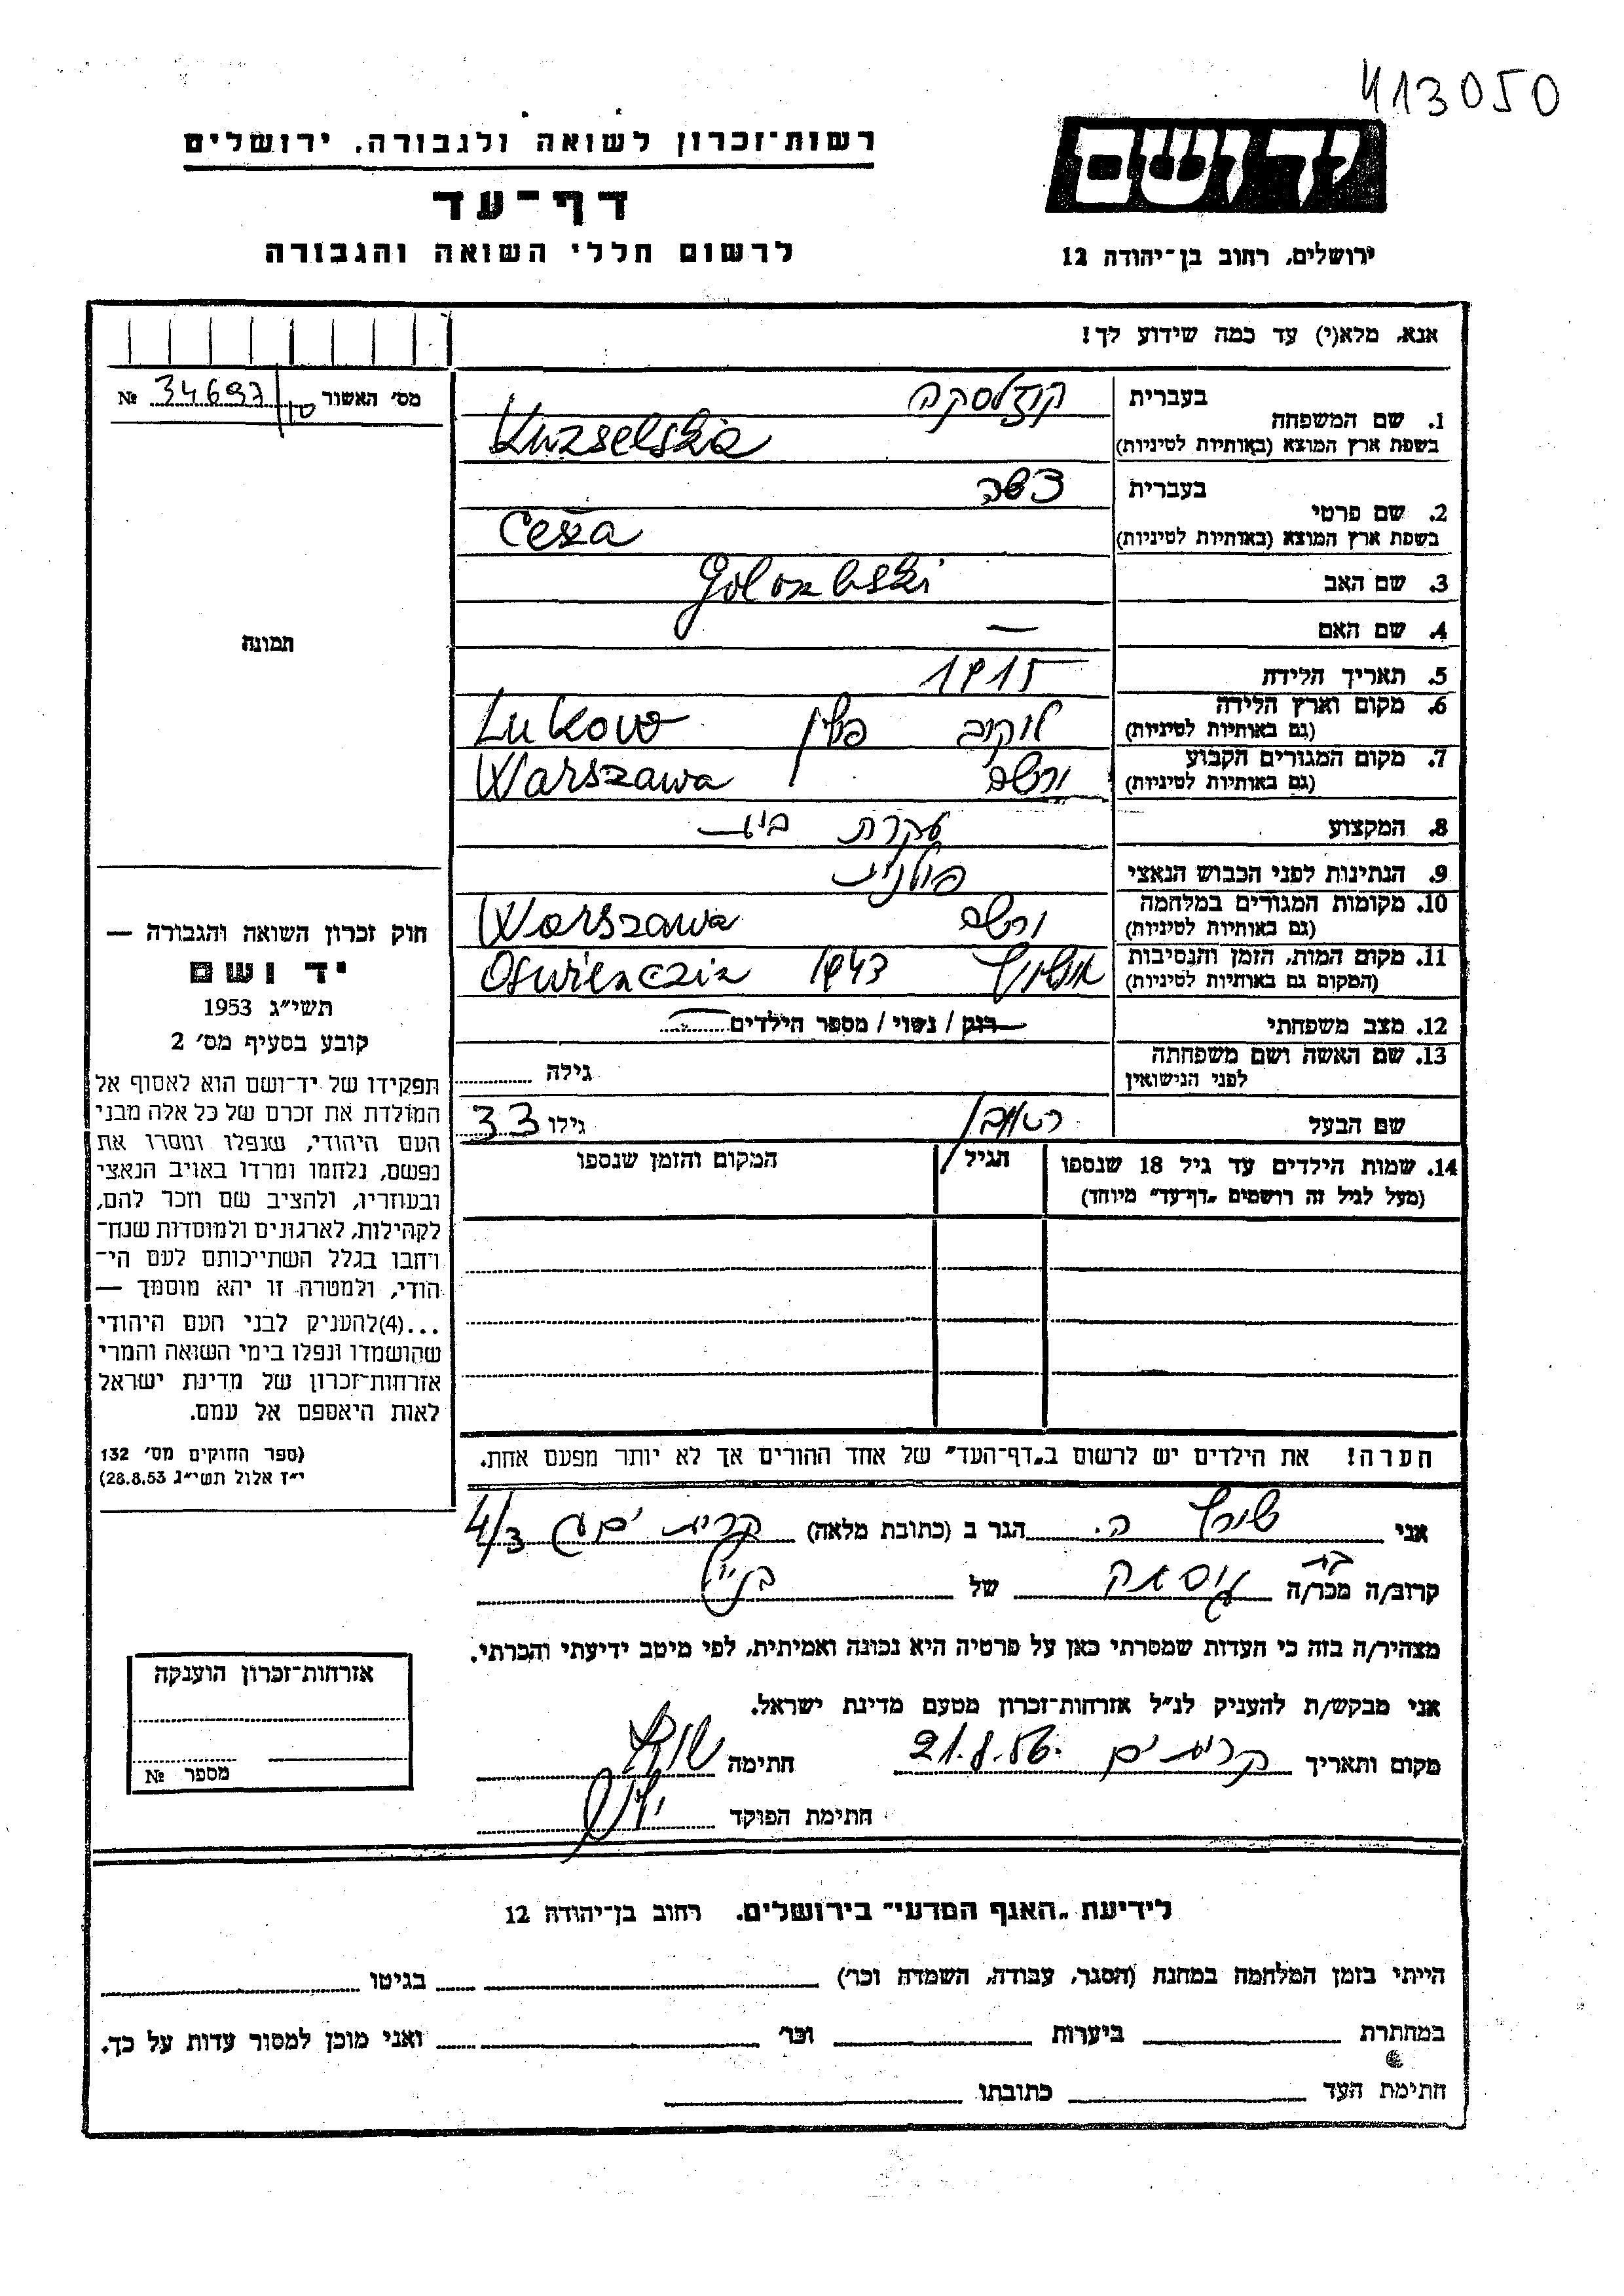 413050
יד ושם
רשות־זכרון לשואה ולגבורה, ירושלים
דף־עד
לרשום חללי השואה והגבורה
ירושלים, רחוב בן־יהודה 12
אנא, מלא(י) עד כמה שידוע לך!
מס׳ האשור 34697 №
1. שם המשפחה
בעברית קוזלסקה
בשפת ארץ המוצא (באותיות לטיניות) Kuzselska
2. שם פרטי
בעברית צשה
בשפת ארץ המוצא (באותיות לטיניות) Cesza
3. שם האב
4. שם האם —
5. תאריך הלידה 1915
6. מקום וארץ הלידה
(גם באותיות לטיניות) לוקוב פולין Lukow
7. מקום המגורים הקבוע
(גם באותיות לטיניות) ורשה Warszawa
8. המקצוע עקרת בית
9. הנתינות לפני הכבוש הנאצי פולנית
10. מקומות המגורים במלחמה
(גם באותיות לטיניות) ורשה Warszawa
11. מקום המות, הזמן והנסיבות
(המקום גם באותיות לטיניות) אושויץ 1943
12. מצב משפחתי רוק / נשוי / מספר הילדים
13. שם האשה ושם משפחתה
לפני הנישואין גילה
שם הבעל ראובן גילו 33
14. שמות הילדים עד גיל 18 שנספו הגיל המקום והזמן שנספו
(מעל לגיל זה רושמים „דף־עד״ מיוחד)
הערה! את הילדים יש לרשום ב„דף־העד״ של אחד ההורים אך לא יותר מפעם אחת.
תמונה
חוק זכרון השואה והגבורה —
יד ושם
תשי״ג 1953
קובע בסעיף מס׳ 2
תפקידו של יד־ושם הוא לאסוף אל
המולדת את זכרם של כל אלה מבני
העם היהודי, שנפלו ומסרו את
נפשם, נלחמו ומרדו באויב הנאצי
ובעוזריו, ולהציב שם וזכר להם,
לקהילות, לארגונים ולמוסדות שנח־
רבו בגלל השתייכותם לעם הי־
הודי, ולמטרה זו יהא מוסמך —
...(4)להעניק לבני העם היהודי
שהושמדו ונפלו בימי השואה והמרי
אזרחות־זכרון של מדינת ישראל
לאות היאספם אל עמם.
(ספר החוקים מס׳ 132
י״ז אלול תשי״ג 28.8.53)
אני שורץ ה. הגר ב (כתובת מלאה) קרית ים 4/3
בת
קרוב/ה מכר/ה של
מצהיר/ה בזה כי העדות שמסרתי כאן על פרטיה היא נכונה ואמיתית, לפי מיטב ידיעתי והכרתי.
אני מבקש/ת להעניק לנ״ל אזרחות־זכרון מטעם מדינת ישראל.
מקום ותאריך קרית ים 21.8.56 חתימה שורץ
חתימת הפוקד
אזרחות־זכרון הוענקה
מספר №
לידיעת „האגף המדעי״ בירושלים. רחוב בן־יהודה 12
הייתי בזמן המלחמה במחנה (הסגר, עבודה, השמדה וכר) בגיטו
במחתרת ביערות וכר ואני מוכן למסור עדות על כך.
חתימת העד כתובתו